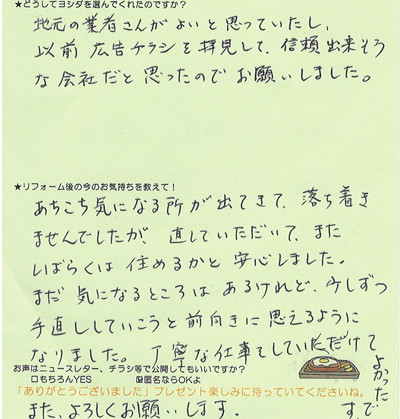 ★どうしてヨシダを選んでくれたのですか？
地元の業者さんがよいと思っていたし、
以前 広告チラシを拝見して、信頼出来そう
な会社だと思ったのでお願いしました。
★リフォーム後の今のお気持ちを教えて！
あちこち気になる所が出てきて、落ち着き
ませんでしたが、直していただいて、また
しばらくは住めるかと安心しました。
まだ 気になるところは あるけれど、少しずつ
手直ししていこうと前向きに思えるように
なりました。丁寧な仕事をしていただけて
よかった
です。
お声はニュースレター、チラシ等で公開してもいいですか？
□もちろんYES　☑匿名ならOKよ
「ありがとうございました」プレゼント楽しみに待っていてくださいね。
また、よろしくお願いします。